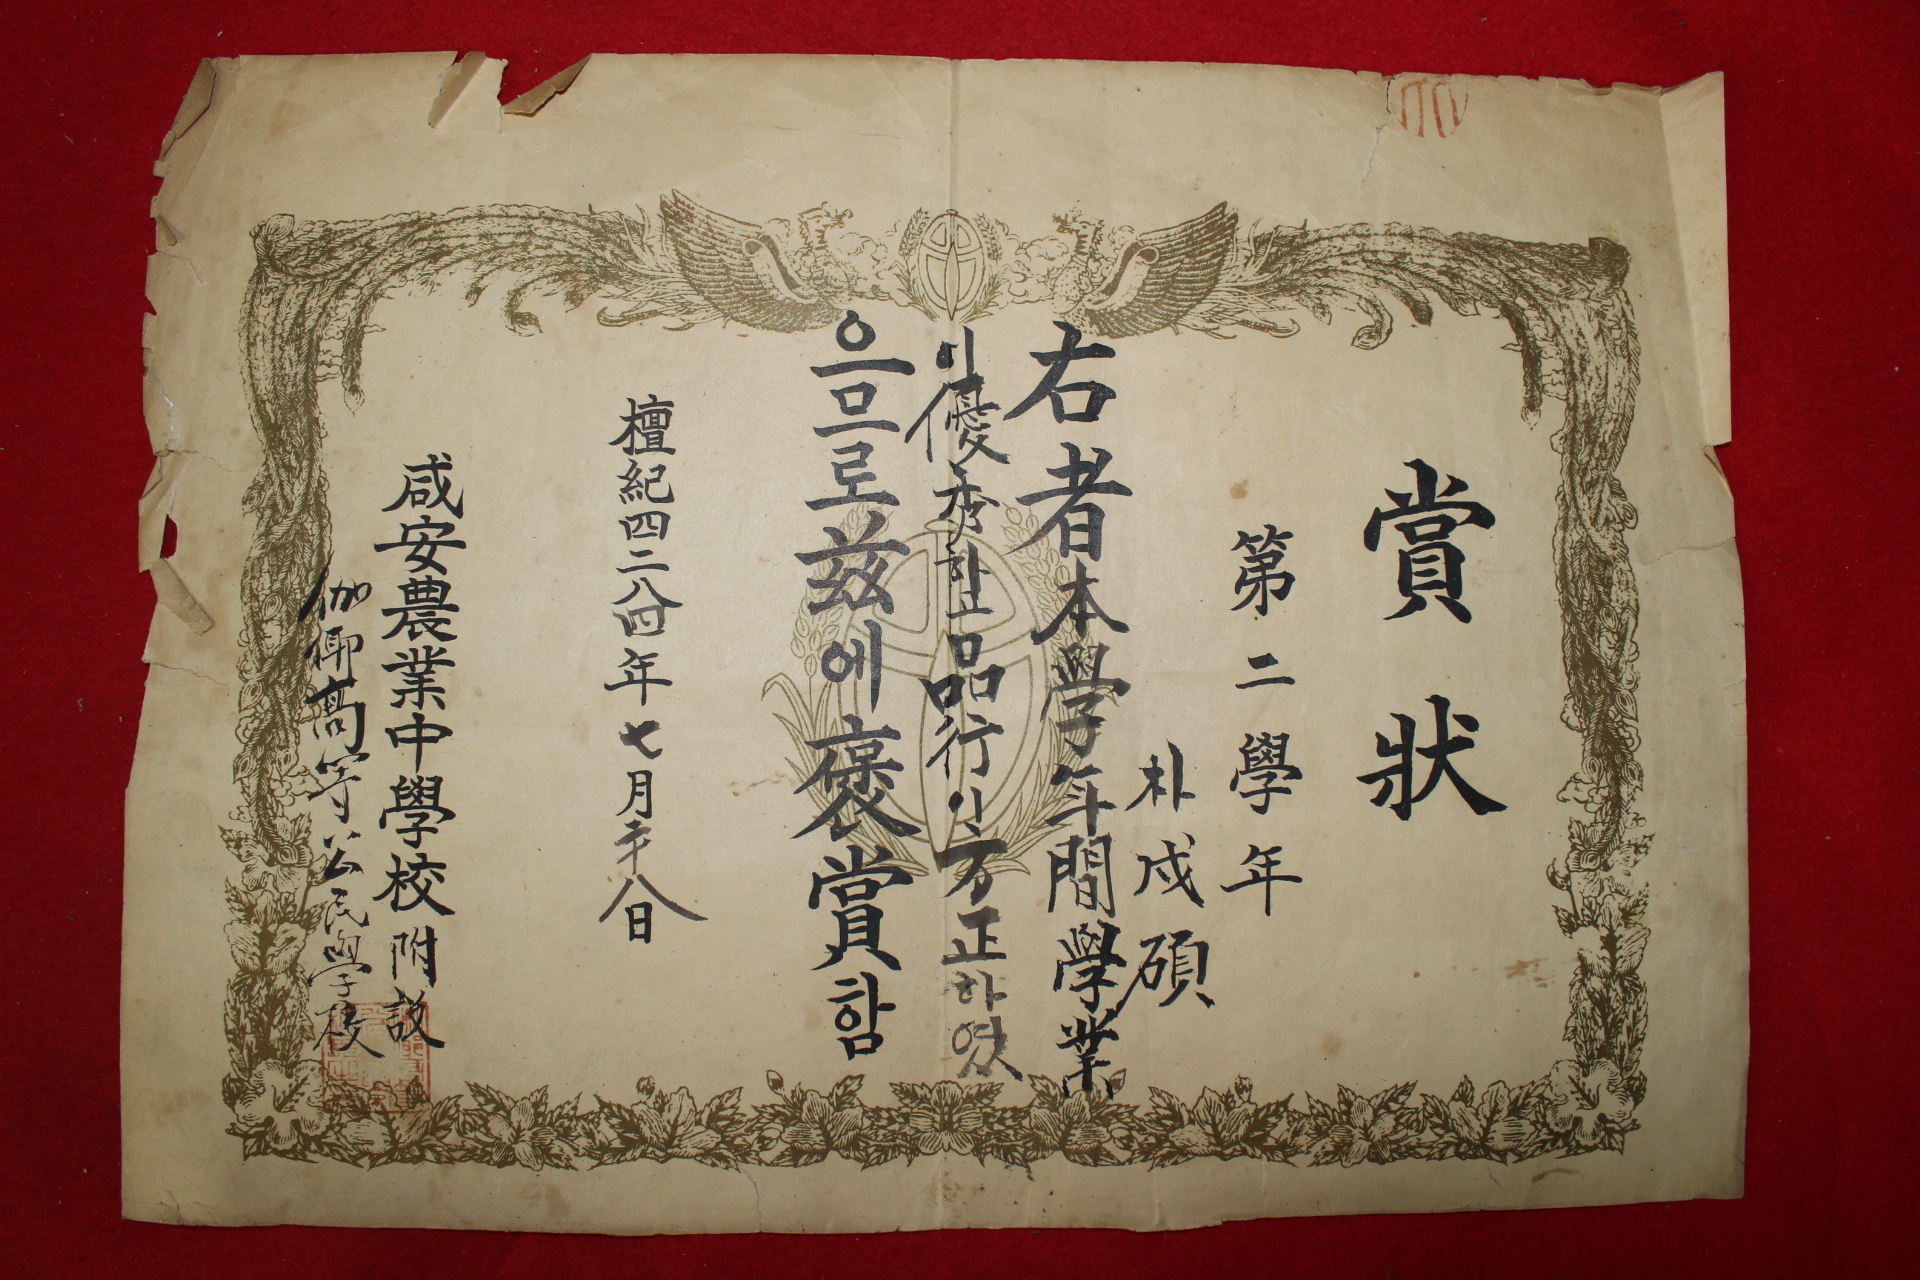 賞狀
第二學年
朴戊碩
右者本學年間學業
이優秀하고品行이方正하였
으므로玆에褒賞함
檀紀四二八四年七月二十八日
咸安農業中學校附設
伽倻高等公民學校